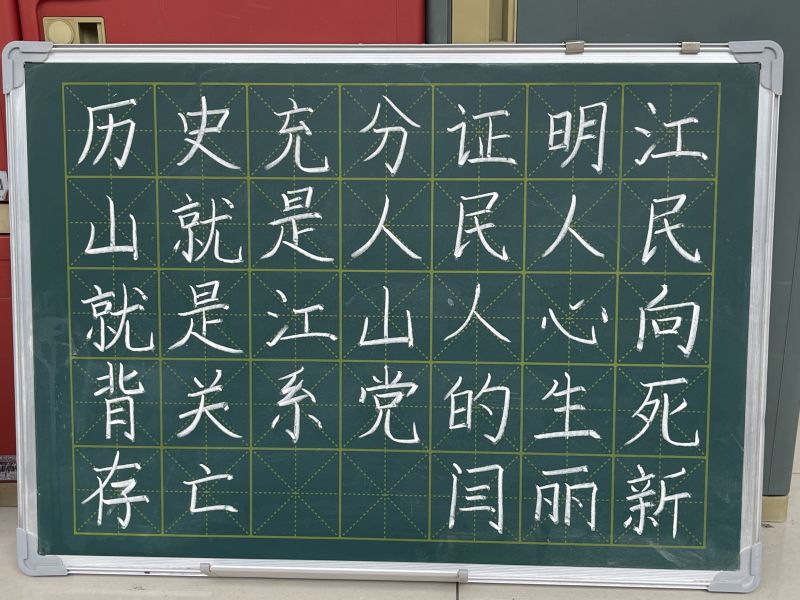 历史充分证明江
山就是人民人民
就是江山人心向
背关系党的生死
存亡 闫丽新